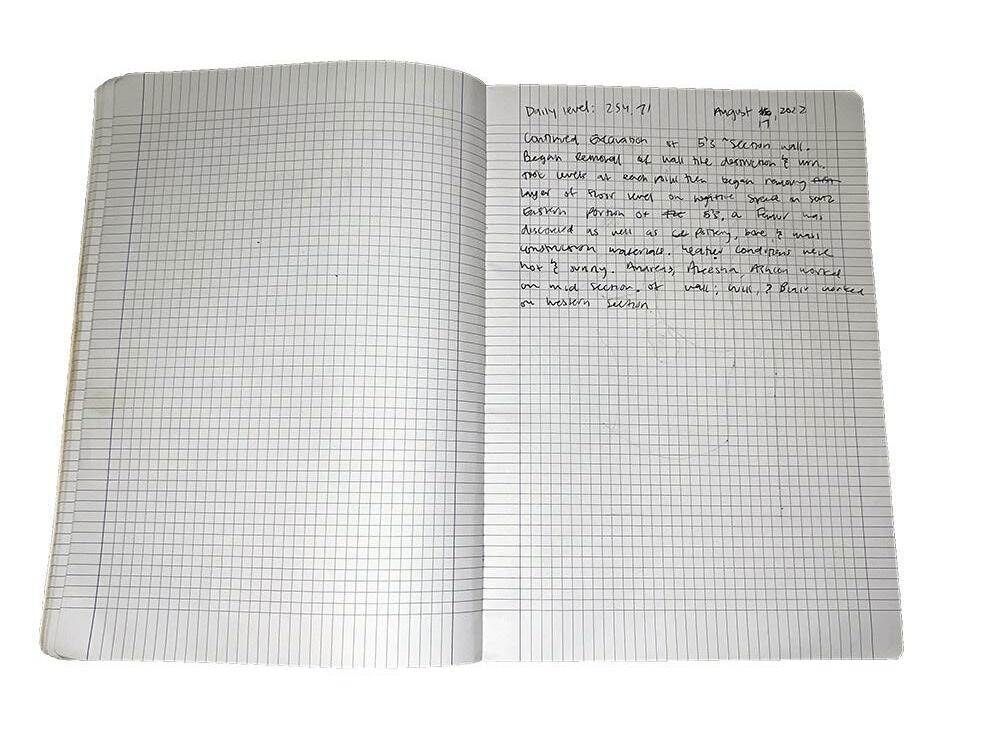 Daily level: 254.71 August 17, 2022
Continued Excavation of 5's section wall.
Began removal of wall tile destruction & urn.
Took levels at each point then began removing
layer of floor level on negative space in
Eastern portion of 5's, a Femur was
discovered as well as pottery, bone, & wall
construction materials. Weather conditions were
hot & sunny. Andreas, worked
on mid section. of wall; Will, & Blair worked
on western section.